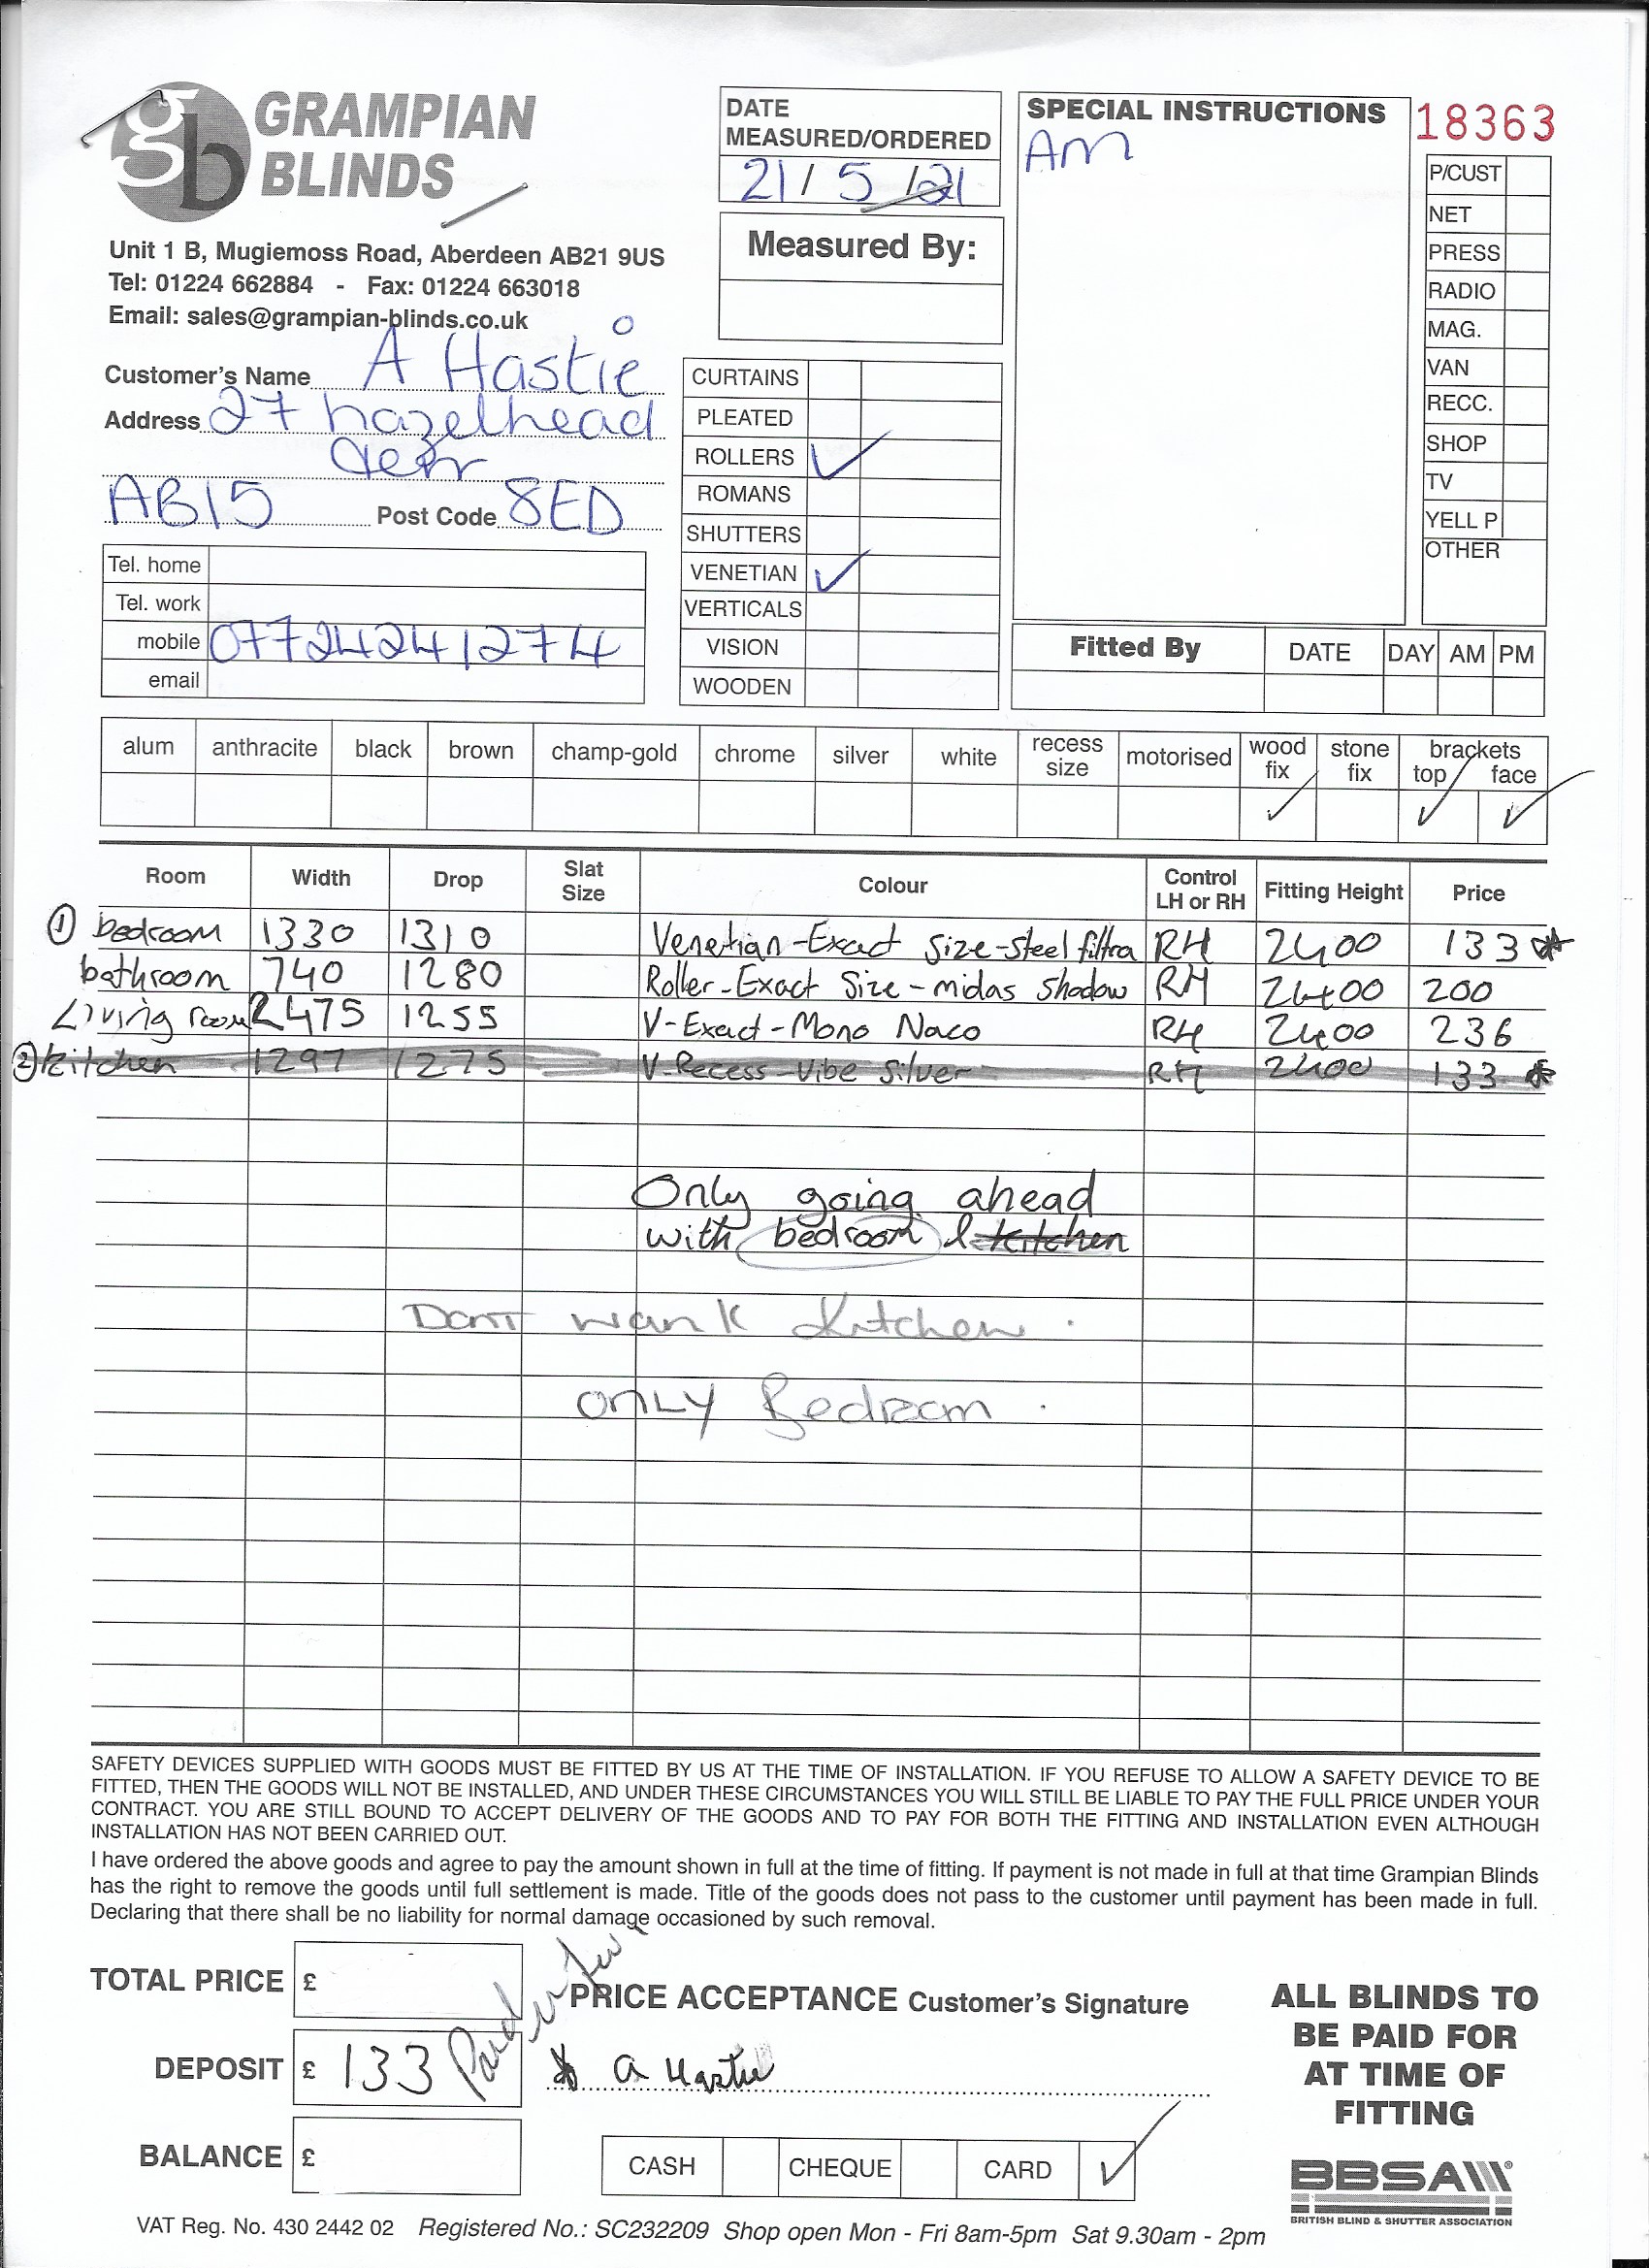 gb GRAMPIAN
BLINDS
Unit 1 B, Mugiemoss Road, Aberdeen AB21 9US
Tel: 01224 662884 - Fax: 01224 663018
Email: sales@grampian-blinds.co.uk
Customer's Name A Hastie
Address 27 hazelhead
AB15 Post Code 8ED
Tel. home
Tel. work
mobile 07724241274
email
DATE
MEASURED/ORDERED
21/5/21
Measured By:
CURTAINS
PLEATED
ROLLERS ✓
ROMANS
SHUTTERS
VENETIAN ✓
VERTICALS
VISION
WOODEN
SPECIAL INSTRUCTIONS
AM
18363
P/CUST
NET
PRESS
RADIO
MAG.
VAN
RECC.
SHOP
TV
YELL P
OTHER
Fitted By DATE DAY AM PM
alum anthracite black brown champ-gold chrome silver white recess size motorised wood fix stone fix brackets top face
✓ ✓ ✓
Room Width Drop Slat Size Colour Control LH or RH Fitting Height Price
① bedroom 1330 1310 Venetian-Exact Size-Steel filtra RH 2400 133 *
bathroom 740 1280 Roller-Exact Size-midas shadow RH 2400 200
Living room 2475 1255 V-Exact-Mono Naco RH 2400 236
② kitchen 1297 1275 V-Recess-Vibe Silver RH 2400 133 *
Only going ahead
with bedroom & kitchen
Dont want Kitchen.
ONLY Bedroom.
SAFETY DEVICES SUPPLIED WITH GOODS MUST BE FITTED BY US AT THE TIME OF INSTALLATION. IF YOU REFUSE TO ALLOW A SAFETY DEVICE TO BE
FITTED, THEN THE GOODS WILL NOT BE INSTALLED, AND UNDER THESE CIRCUMSTANCES YOU WILL STILL BE LIABLE TO PAY THE FULL PRICE UNDER YOUR
CONTRACT. YOU ARE STILL BOUND TO ACCEPT DELIVERY OF THE GOODS AND TO PAY FOR BOTH THE FITTING AND INSTALLATION EVEN ALTHOUGH
INSTALLATION HAS NOT BEEN CARRIED OUT.
I have ordered the above goods and agree to pay the amount shown in full at the time of fitting. If payment is not made in full at that time Grampian Blinds
has the right to remove the goods until full settlement is made. Title of the goods does not pass to the customer until payment has been made in full.
Declaring that there shall be no liability for normal damage occasioned by such removal.
TOTAL PRICE £
DEPOSIT £ 133 Paid in full
BALANCE £
PRICE ACCEPTANCE Customer's Signature
A Hastie
CASH CHEQUE CARD ✓
ALL BLINDS TO
BE PAID FOR
AT TIME OF
FITTING
BBSA
BRITISH BLIND & SHUTTER ASSOCIATION
VAT Reg. No. 430 2442 02 Registered No.: SC232209 Shop open Mon - Fri 8am-5pm Sat 9.30am - 2pm